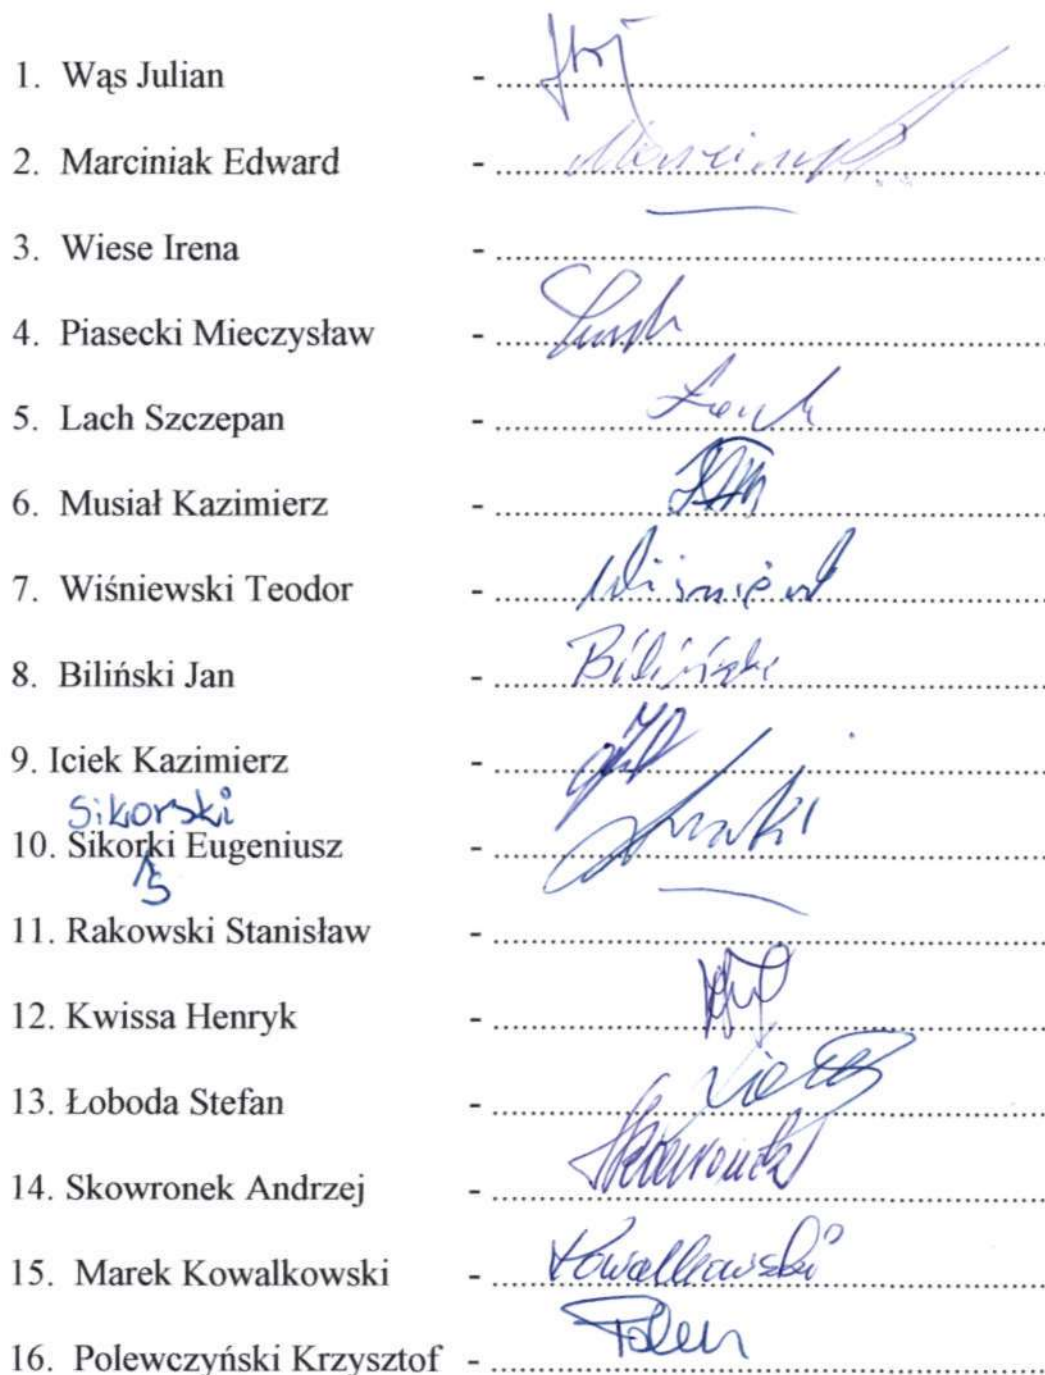 1. Wąs Julian - ........................
2. Marciniak Edward - ........................
3. Wiese Irena - ........................
4. Piasecki Mieczysław - ........................
5. Lach Szczepan - ........................ Lach
6. Musiał Kazimierz - ........................
7. Wiśniewski Teodor - ........................
8. Biliński Jan - ........................ Biliński
9. Iciek Kazimierz - ........................
Sikorski
10. Sikorki Eugeniusz - ........................
s
11. Rakowski Stanisław - ........................
12. Kwissa Henryk - ........................
13. Łoboda Stefan - ........................
14. Skowronek Andrzej - ........................ Skowronek
15. Marek Kowalkowski - ........................ Kowalkowski
16. Polewczyński Krzysztof - ........................